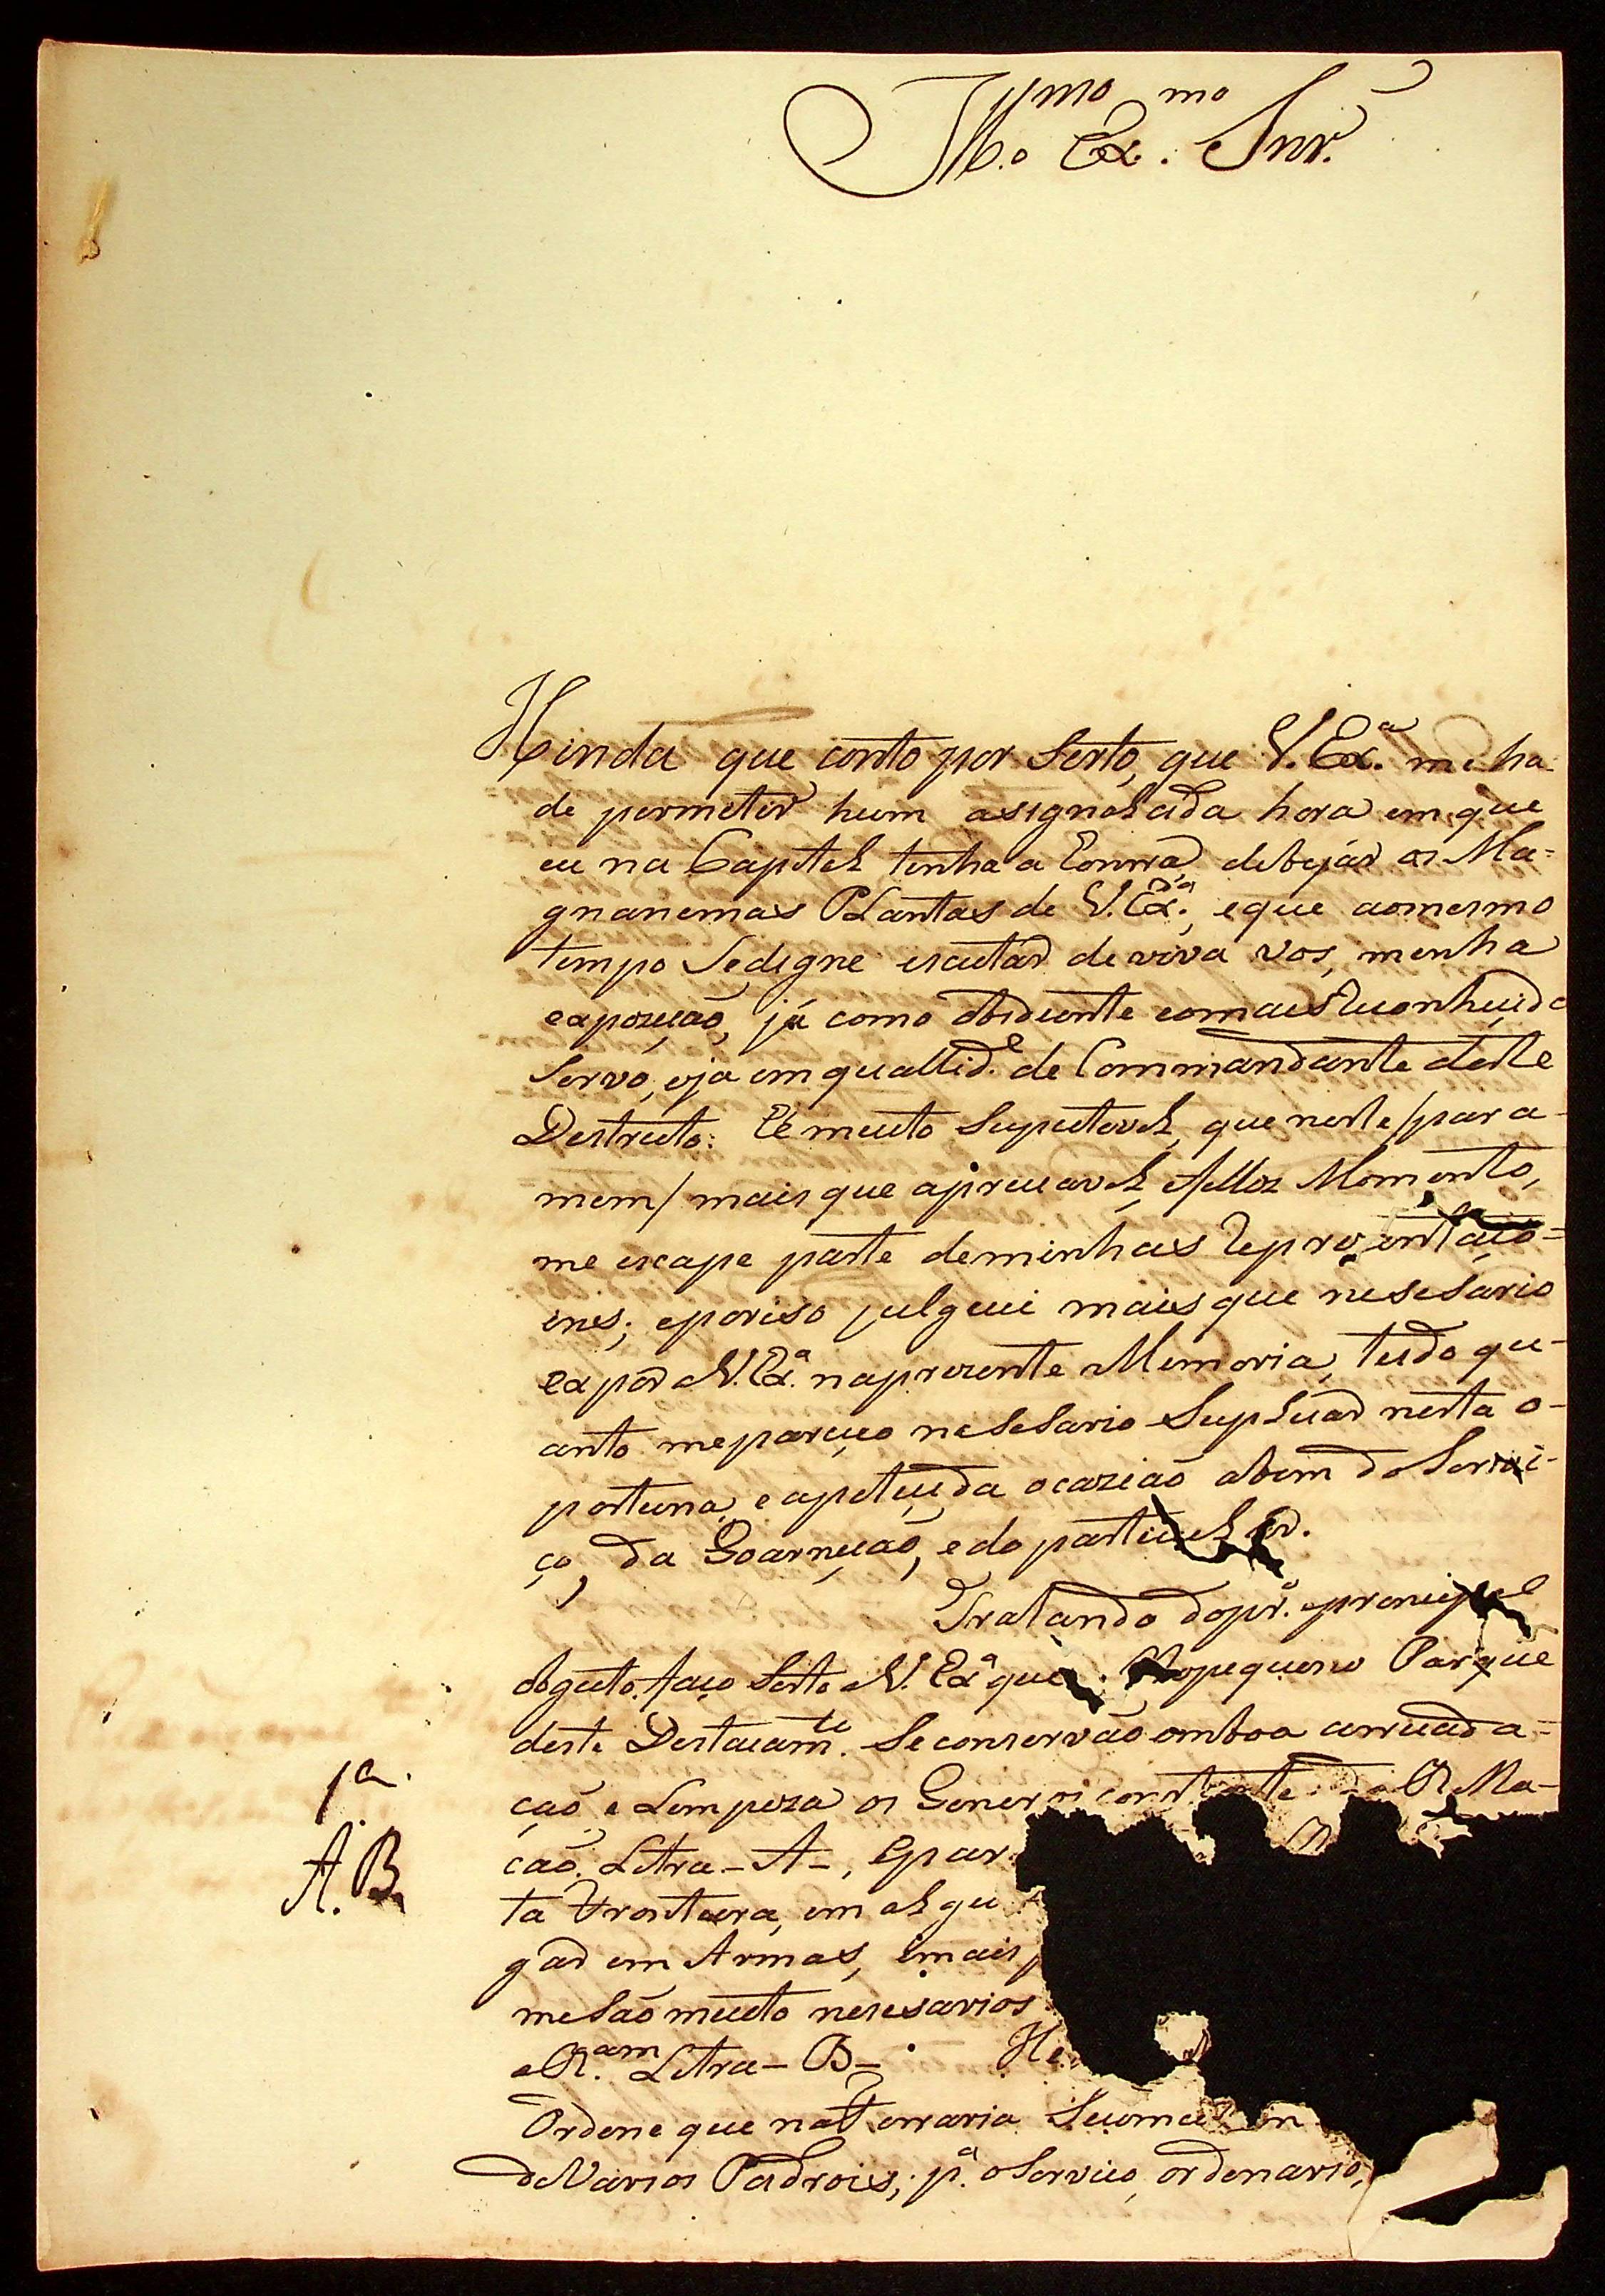 Ill.mo Ex.mo Snr.
Hinda que conto por Serto, que V. Ex.a me ha
de permeter hum asignalada hora em que
eu na Capital tenha a Honrra de bejar os Ma=
gnanemas Plantas de V. Ex.a, e que ao mesmo
tempo Se digne escutar de viva vos, menha
expozição, já como obidiente e omais reconheçido
Servo, eja em quallid.e de Commandante deste
Destreito. He muito Supeitavel, que neste / para
mem / mais que apreciavel, e fellos Momento,
me escape parte de minhas Reprezentaço=
ins; e poriso julguei mais que nesesario
expor a V. Ex.a na prezente Memoria, tudo qu-
anto me pareceo nesesario Suplicar nesta o-
portuna, e apeteçida ocazião abem do Servi-
ço da Goarnição, e do particular.
Tratando do pr.o e prencipal
obgeto. faço Serto a V. Ex.a que no pequeno Parque
deste Destacam.to Se conservão em boa arrecada=
ção e Lempeza os Generos constante da R. Ma-
1.a
A. B.
ção Letra - A -, e par
ta Fronteira, em algu
gar em Armas, e mais
me são muito nesesarios
a R.am Letra - B - . He
Ordene que na Ferraria Se
de Varios Padrois; p.a o Serviço ordenario,